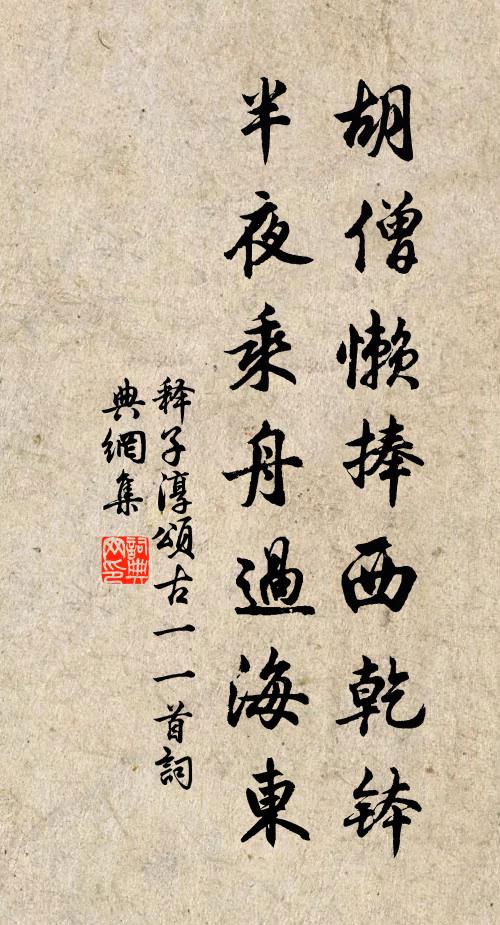 胡僧懒捧西乾钵
半夜乘舟過海東
释子淳頌古一一首詞
典網集
詞典
网印